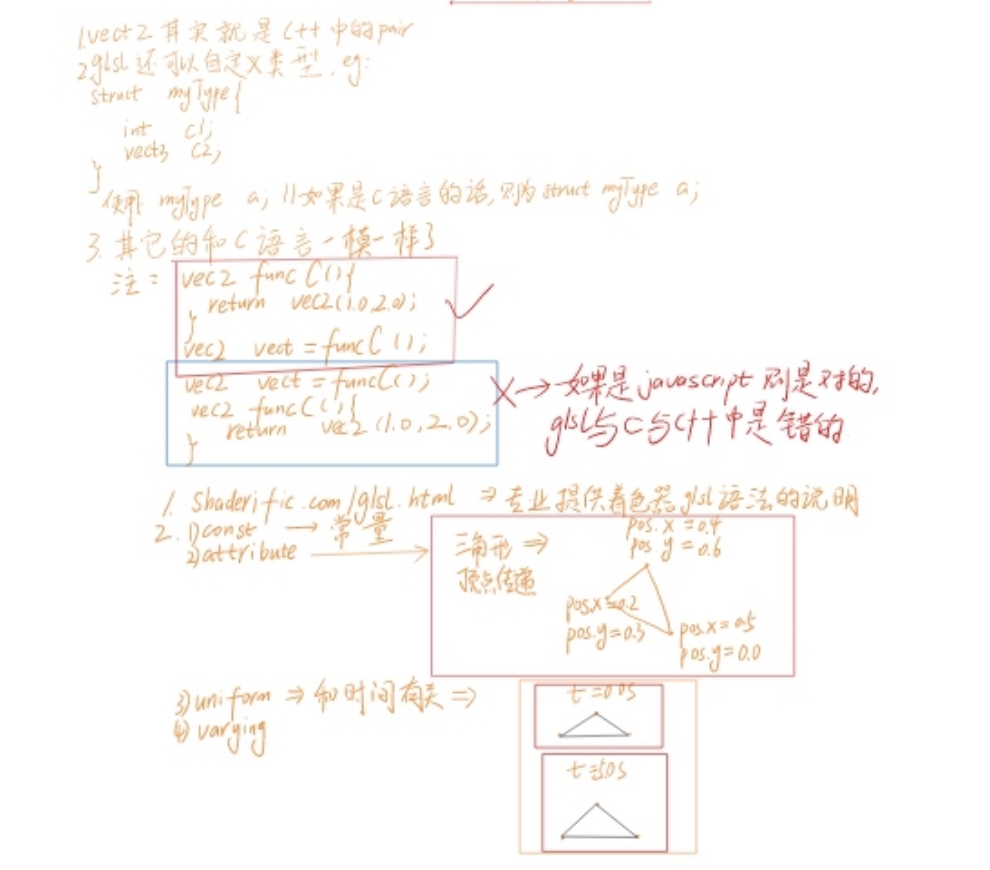 1.vect2其实就是C++中的pair
2.glsl还可以自定义类型,eg:
struct myType{
int c1;
vect3 c2;
}
使用: myType a; //如果是C语言的话,则为struct myType a;
3.其它的和C语言一模一样了
注:
vec2 funcC(){
return vec2(1.0,2.0);
}
vec2 vect=funcC();
vec2 vect=funcC();
vec2 funcC(){
return vec2(1.0,2.0);
}
X→如果是javascript则是对的,
glsl与C与C++中是错的
1. Shaderific.com/glsl.html ⇒专业提供着色器glsl语法的说明
2. 1)const → 常量
2)attribute
三角形⇒
顶点传递
pos.x=0.4
pos.y=0.6
pos.x=0.2
pos.y=0.3
pos.x=0.5
pos.y=0.0
3)uniform ⇒和时间有关⇒
4)varying
t=0.0s
t=5.0s